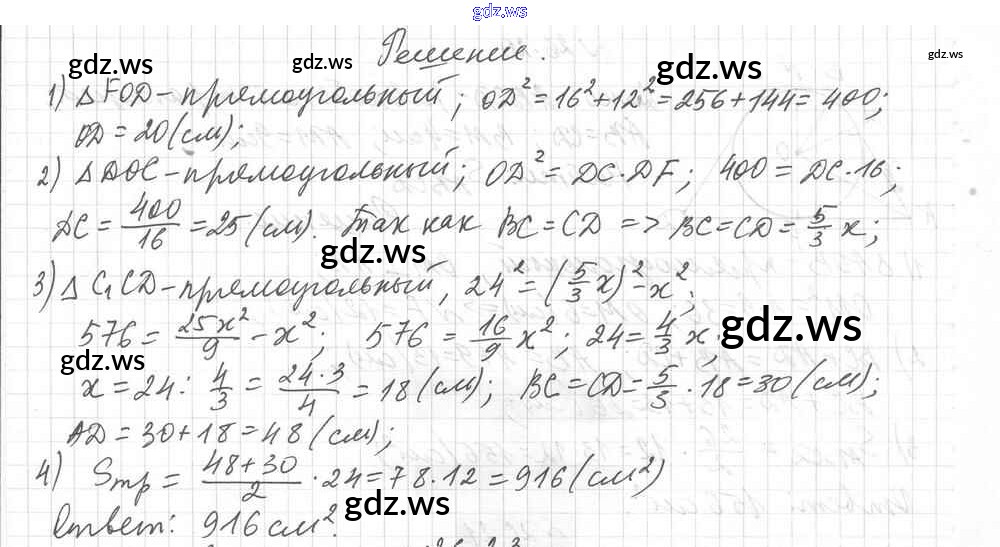 gdz.ws
Решение.
gdz.ws gdz.ws gdz.ws gdz.ws
1) Δ FOD - прямоугольный; OD² = 16² + 12² = 256 + 144 = 400;
OD = 20 (см);
2) Δ DOC - прямоугольный; OD² = DC · DF; 400 = DC · 16;
DC = 400/16 = 25 (см). Так как BC = CD => BC = CD = 5/3 x;
gdz.ws
3) Δ C₁CD - прямоугольный, 24² = (5/3 x)² - x²;
576 = 25x²/9 - x²; 576 = 16/9 x²; 24 = 4/3 x;
gdz.ws gdz.ws
x = 24 : 4/3 = 24·3/4 = 18 (см); BC = CD = 5/3 · 18 = 30 (см);
AD = 30 + 18 = 48 (см);
4) Sтр = 48+30/2 · 24 = 78 · 12 = 916 (см²)
gdz.ws
Ответ: 916 см².